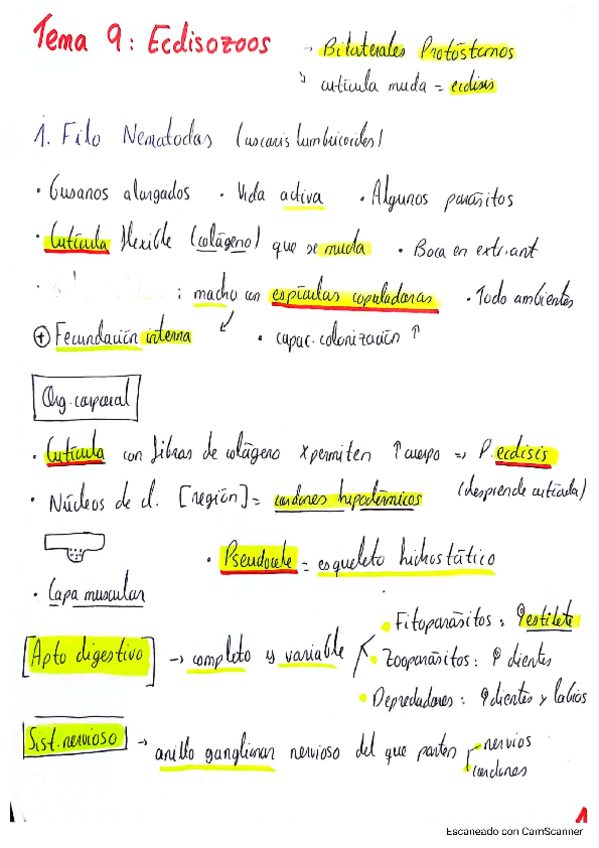 Tema 9: Ecdisozoos → Bilaterales Protóstomos
↳ cutícula muda = ecdisis
1. Filo Nematodas (ascaris lumbricoides)
· Gusanos alargados · Vida activa · Algunos parásitos
· Cutícula flexible (colágeno) que se muda · Boca en extr.ant
· : macho con espículas copuladoras · Todo ambientes
⊕ Fecundación interna ↙ · capac. colonización ↑
Org. corporal
· Cutícula con fibras de colágeno x permiten ↑ cuerpo => P. ecdisis
· Núcleos de cl. [región] = cordones hipodérmicos (desprende cutícula)
· Pseudocele = esqueleto hidrostático
· Capa muscular
[Apto digestivo] → completo y variable
· Fitoparásitos: estilete
· Zooparásitos: dientes
· Depredadores: dientes y labios
Sist. nervioso → anillo ganglionar nervioso del que parten nervios
cordones
1
Escaneado con CamScanner